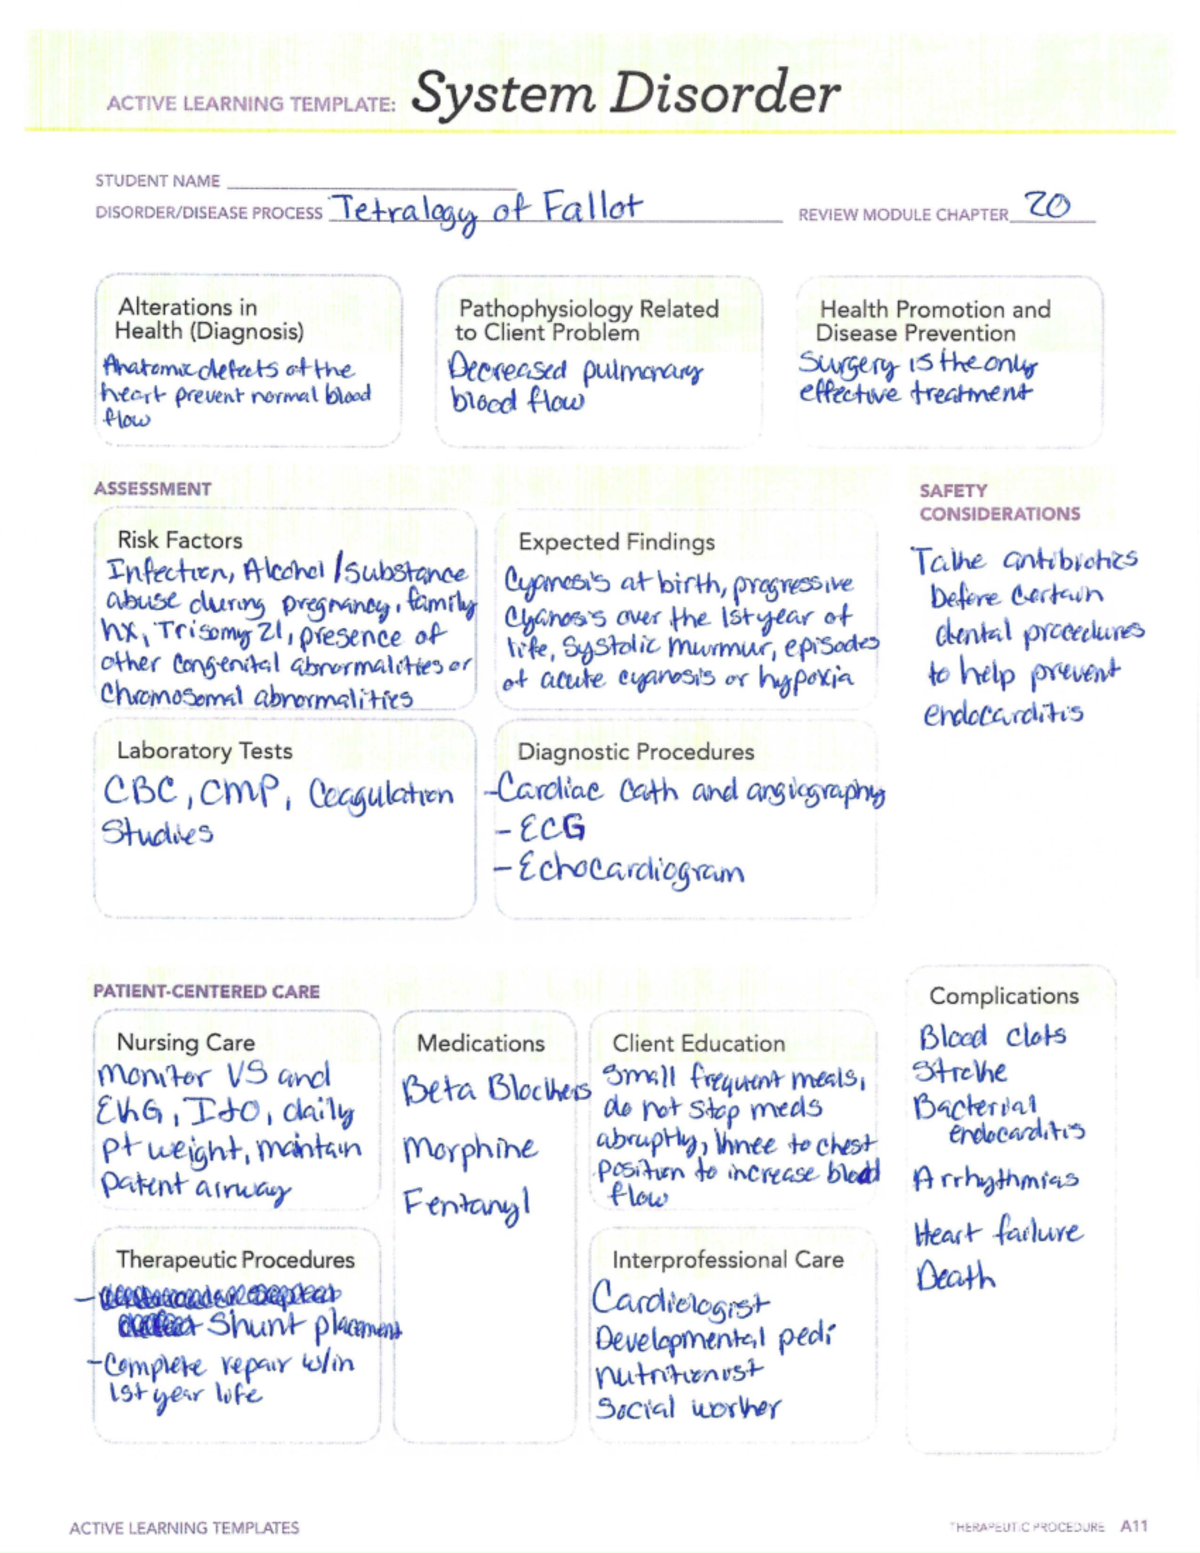 ACTIVE LEARNING TEMPLATE: System Disorder
STUDENT NAME
DISORDER/DISEASE PROCESS Tetralogy of Fallot
REVIEW MODULE CHAPTER 20
Alterations in
Health (Diagnosis)
Anatomic defects of the
heart prevent normal blood
flow
Pathophysiology Related
to Client Problem
Decreased pulmonary
blood flow
Health Promotion and
Disease Prevention
Surgery is the only
effective treatment
ASSESSMENT
SAFETY
CONSIDERATIONS
Risk Factors
Infection, Alcohol/Substance
abuse during pregnancy, family
hx, Trisomy 21, presence of
other congenital abnormalities or
Chromosomal abnormalities
Expected Findings
Cyanosis at birth, progressive
Cyanosis over the 1st year of
life, Systolic murmur, episodes
of acute cyanosis or hypoxia
Take antibiotics
before certain
dental procedures
to help prevent
endocarditis
Laboratory Tests
CBC, CMP, Coagulation
Studies
Diagnostic Procedures
-Cardiac Cath and angiography
- ECG
- Echocardiogram
PATIENT-CENTERED CARE
Nursing Care
monitor VS and
EKG, I+O, daily
pt weight, maintain
patent airway
Medications
Beta Blockers
Morphine
Fentanyl
Client Education
Small frequent meals,
do not stop meds
abruptly, knee to chest
position to increase blood
flow
Complications
Blood clots
Stroke
Bacterial
endocarditis
Arrhythmias
Heart failure
Death
Therapeutic Procedures
-
Shunt placement
-Complete repair w/in
1st year life
Interprofessional Care
Cardiologist
Developmental pedi
nutritionist
Social worker
ACTIVE LEARNING TEMPLATES
THERAPEUTIC PROCEDURE A11